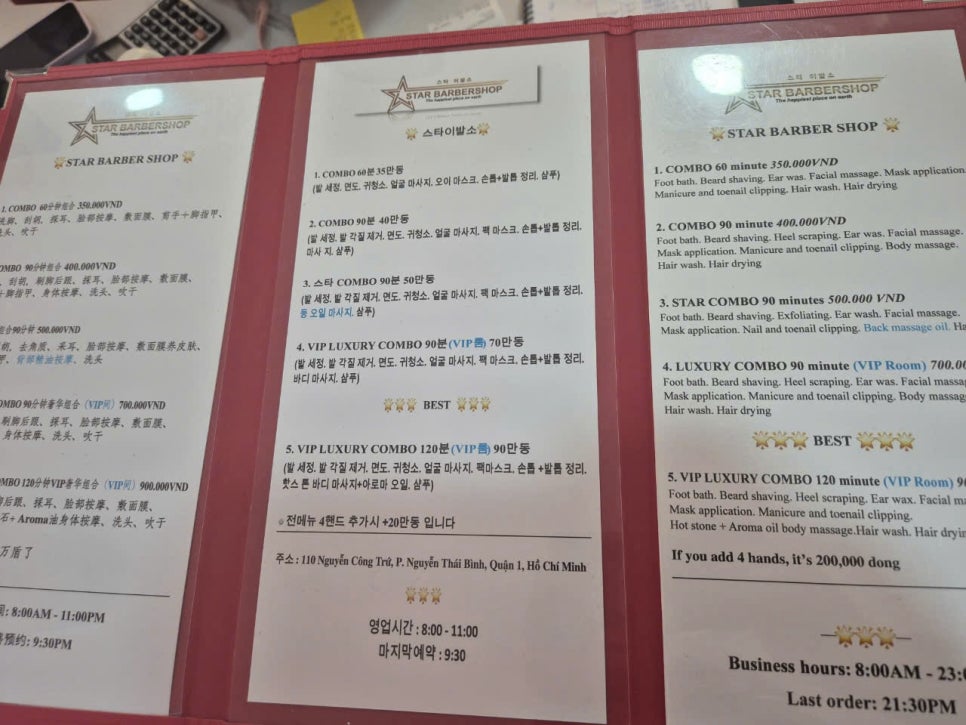 STAR BARBERSHOP
The happiest place on earth
STAR BARBER SHOP
1. COMBO 60分钟组合 350.000VND
洗脚、刮胡、採耳、脸部按摩、敷面膜、剪手+脚指甲、
洗头、吹干
COMBO 90分钟组合 400.000VND
、刮胡、刷脚后跟、採耳、脸部按摩、敷面膜、
+脚指甲、身体按摩、洗头、吹干
90分钟 500.000VND
胡、去角质、采耳、脸部按摩、敷面膜养皮肤、
甲、背部精油按摩、洗头
COMBO 90分钟奢华组合（VIP间）700.000VND
刷脚后跟、採耳、脸部按摩、敷面膜、
、身体按摩、洗头、吹干
COMBO 120分钟VIP奢华组合（VIP间）900.000VND
脚后跟、採耳、脸部按摩、敷面膜、
石+ Aroma油身体按摩、洗头、吹干
万盾了
间: 8:00AM - 11:00PM
预约: 9:30PM
스타 이발소
STAR BARBERSHOP
The happiest place on earth
스타이발소
1. COMBO 60분 35만동
(발 세정. 면도. 귀청소. 얼굴 마사지. 오이 마스크. 손톱+발톱 정리. 샴푸)
2. COMBO 90분 40만동
(발 세정. 발 각질 제거. 면도. 귀청소. 얼굴 마사지. 팩 마스크. 손톱+발톱 정리.
마사 지. 샴푸)
3. 스타 COMBO 90분 50만동
(발 세정. 발 각질 제거. 면도. 귀청소. 얼굴 마사지. 팩 마스크. 손톱+발톱 정리.
등 오일 마사지. 샴푸)
4. VIP LUXURY COMBO 90분(VIP룸) 70만동
(발 세정. 발 각질 제거. 면도. 귀청소. 얼굴 마사지. 팩 마스크. 손톱+발톱 정리.
바디 마사지. 샴푸)
BEST
5. VIP LUXURY COMBO 120분(VIP룸) 90만동
(발 세정. 발 각질 제거. 면도. 귀청소. 얼굴 마사지. 팩마스크. 손톱 +발톱 정리.
핫스 톤 바디 마사지+아로마 오일. 샴푸)
전메뉴 4핸드 추가시 +20만동 입니다
주소 : 110 Nguyễn Công Trứ, P. Nguyễn Thái Bình, Quận 1, Hồ Chí Minh
영업시간 : 8:00 - 11:00
마지막예약 : 9:30
스타 이발소
STAR BARBERSHOP
The happiest place on earth
STAR BARBER SHOP
1. COMBO 60 minute 350.000VND
Foot bath. Beard shaving. Ear was. Facial massage. Mask application.
Manicure and toenail clipping. Hair wash. Hair drying
2. COMBO 90 minute 400.000VND
Foot bath. Beard shaving. Heel scraping. Ear was. Facial massage.
Mask application. Manicure and toenail clipping. Body massage.
Hair wash. Hair drying
3. STAR COMBO 90 minutes 500.000 VND
Foot bath. Beard shaving. Exfoliating. Ear wash. Facial massage.
Mask application. Nail and toenail clipping. Back massage oil. Ha
4. LUXURY COMBO 90 minute (VIP Room) 700.00
Foot bath. Beard shaving. Heel scraping. Ear was. Facial massa
Mask application. Manicure and toenail clipping. Body massag
Hair wash. Hair drying
BEST
5. VIP LUXURY COMBO 120 minute (VIP Room) 90
Foot bath. Beard shaving. Heel scraping. Ear wax. Facial ma
Mask application. Manicure and toenail clipping.
Hot stone + Aroma oil body massage.Hair wash. Hair dryin
If you add 4 hands, it's 200,000 dong
Business hours: 8:00AM - 23:0
Last order: 21:30PM